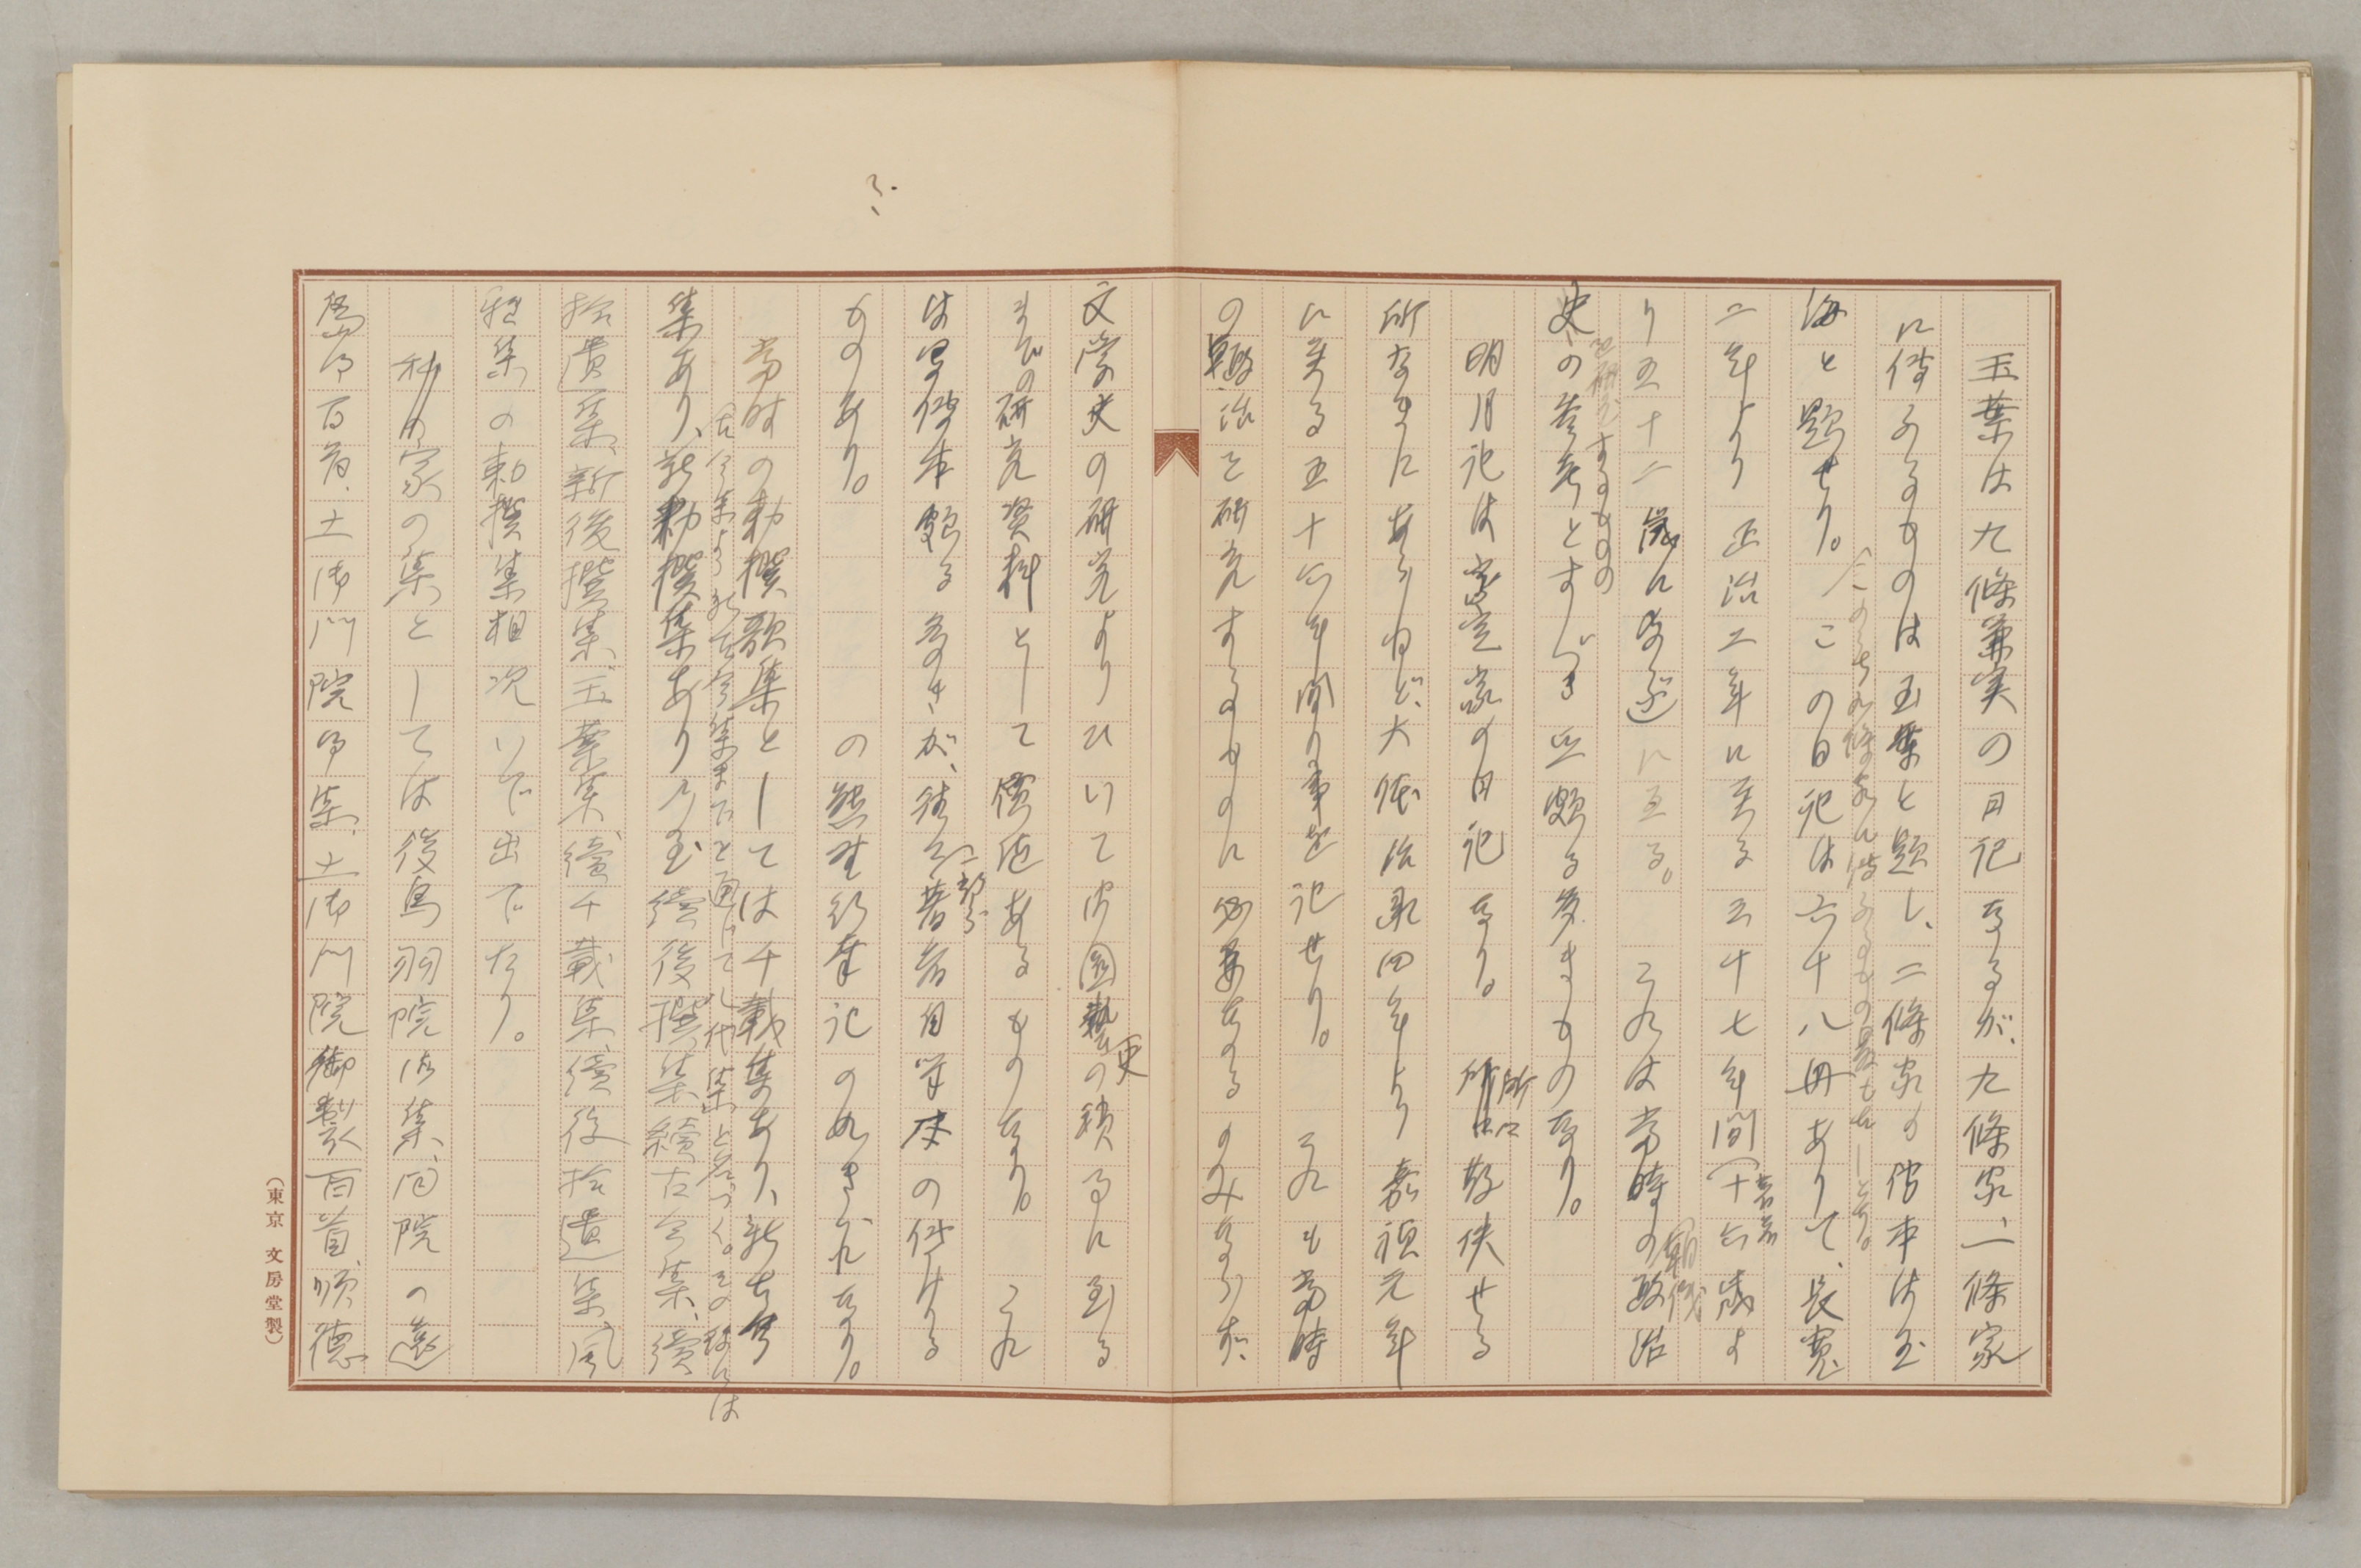 玉葉は九條兼実の日記なるが、九條家、一條家
に傳ふるものは玉葉と題し、二條家の傳本は玉
海と題せり。この日記は六十八冊ありて、長寛
(このうち九條家に傳ふるもの最もよしとす。
二年より正治二年に至る三十七年間(十六歳よ
り五十二歳に及ぶ これは當時の政治
朝儀
を研究するものの
史の参考とすべき点頗る多きものなり。
明月記は藤原定家の日記なり。 散佚せる
所なきにあらねど、大体治承四年より嘉禎元年
に至る五十六年間の事を記せり。これも當時
の政治を研究するものに必要なるのみならず、
文學史の研究よりひいて 藝の に至る
史
までの研究資料として價値あるものなり。これ
は写傳本頗る多きが、 著者自筆本の傳はる
一部分
ものあり。 の熊野行幸記の如きこれなり。
當時の勅撰歌集としては千載集あり、新古今
古今集より新古今集までを通じて八代集と名づく。その後には
集あり、新勅撰集あり 続後撰集續古今集、續
拾遺集、新後撰集、玉葉集、續千載集、續後拾遺集、風
雅集の勅撰集相次いで出でたり。
私の家の集としては後鳥羽院御集、同院の遠
島御百首、土御門院御集、土御門院御製百首、順徳
(東京 文房堂製)